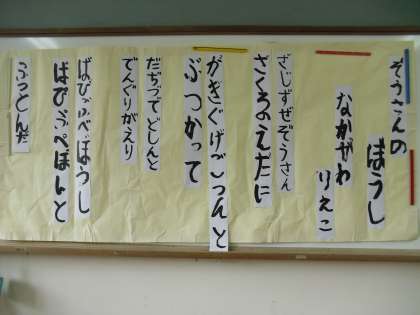 ぞうさんの
ぼうし
なかがわ
りえこ
ざじずぜぞうさん
ざくろのえだに
がぎぐげごつんと
ぶつかって
だぢづでどしんと
でんぐりがえり
ばびぶべぼうし
ぱぴぷぺぽんと
ふっとんだ